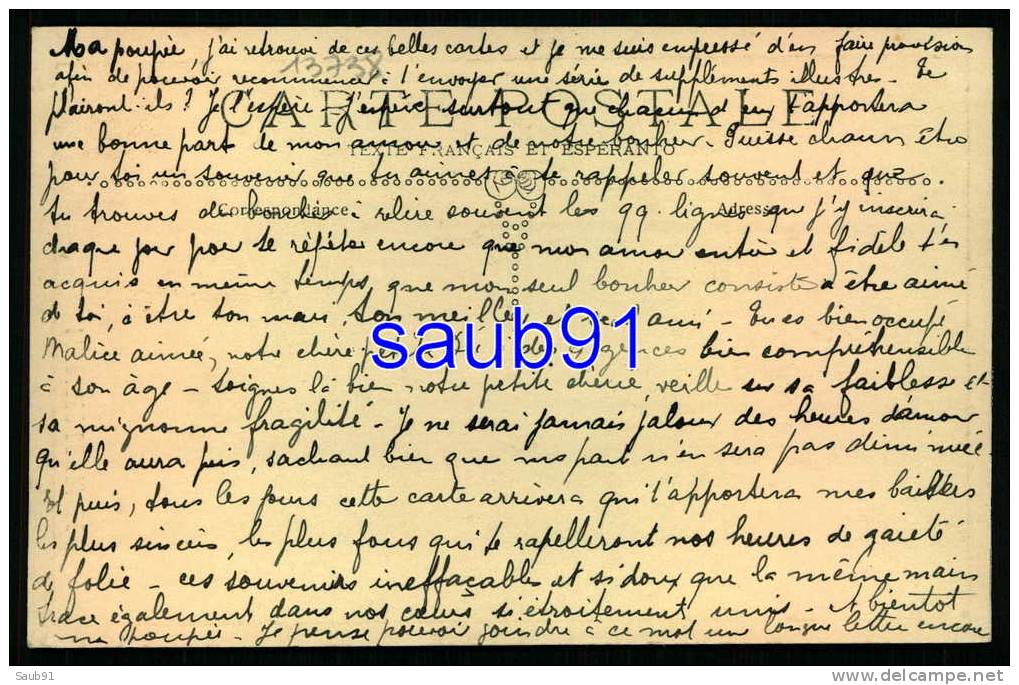 Ma poupée, j'ai retrouvé de ces belles cartes et je me suis empressé d'en faire provision
13738
afin de pouvoir recommencer à t'envoyer une série de suppléments illustrés - Te
plairont-ils ? Je l'espère. J'espère surtout que chacun d'eux t'apportera
CARTE POSTALE
une bonne part de mon amour et de notre bonheur. Puisse chacun être
TEXTE FRANÇAIS ET ESPERANTO
pour toi un souvenir que tu aimes à te rappeler souvent et que
Correspondance Adresse
tu trouves du bonheur à relire souvent les 99 lignes que j'y inscrirai
chaque jour pour te répéter encore que mon amour entier et fidèle t'es
acquis en même temps, que mon seul bonheur consiste à être aimé
de toi, à être ton mari, ton meilleur et seul ami - Tu es bien occupé
saub91
Malice aimée, notre chère a des exigences bien compréhensible
à son âge - soignes là bien notre petite chérie, veille sur sa faiblesse et
sa mignonne fragilité - Je ne serai jamais jaloux des heures d'amour
qu'elle aura pris, sachant bien que ma part n'en sera pas diminuée
Et puis, tous les jours cette carte arrivera qui t'apportera mes baisers
les plus sincères, les plus fous qui te rapelleront nos heures de gaieté
de folie - ces souvenirs ineffaçables et si doux que la même main
trace également dans nos cœurs si étroitement unis - A bientot
ma poupée - Je pense pouvoir joindre à ce mot une longue lettre encore
Saub91
delcampe.net